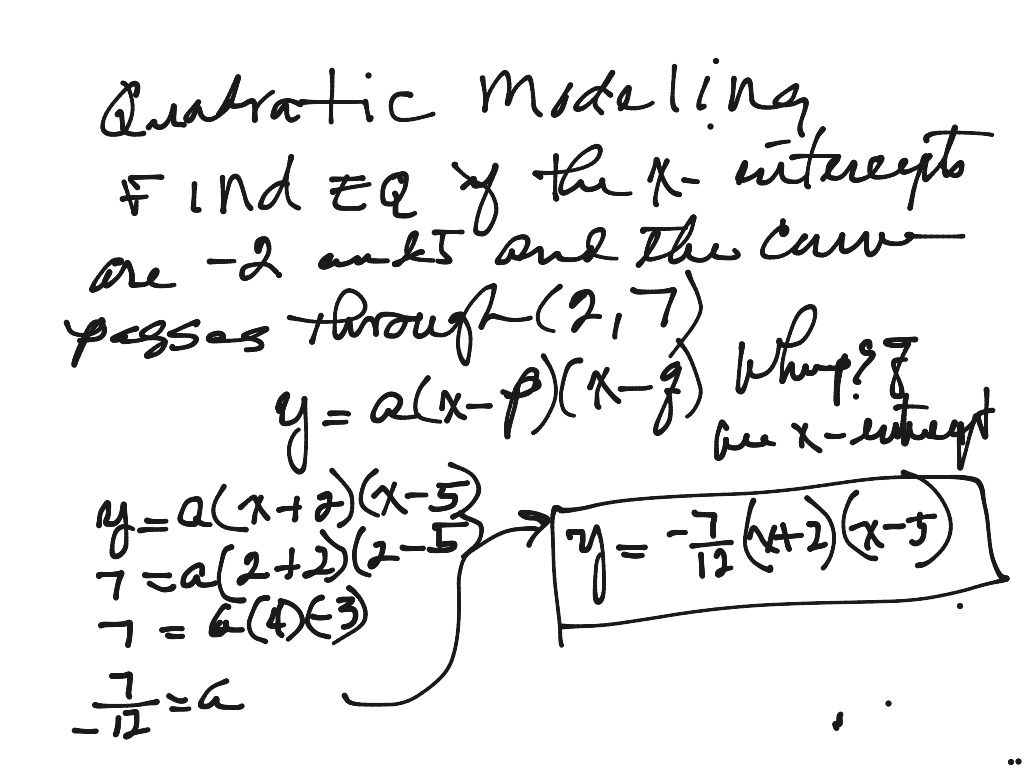 Quadratic Modeling
Find EQ if the x-intercepts
are -2 and 5 and the curve
passes through (2,7)
y = a(x-p)(x-q) Where p & q
are x-intercept
y = a(x+2)(x-5)
7 = a(2+2)(2-5)
7 = a(4)(-3)
7/-12 = a
y = -7/12 (x+2)(x-5)